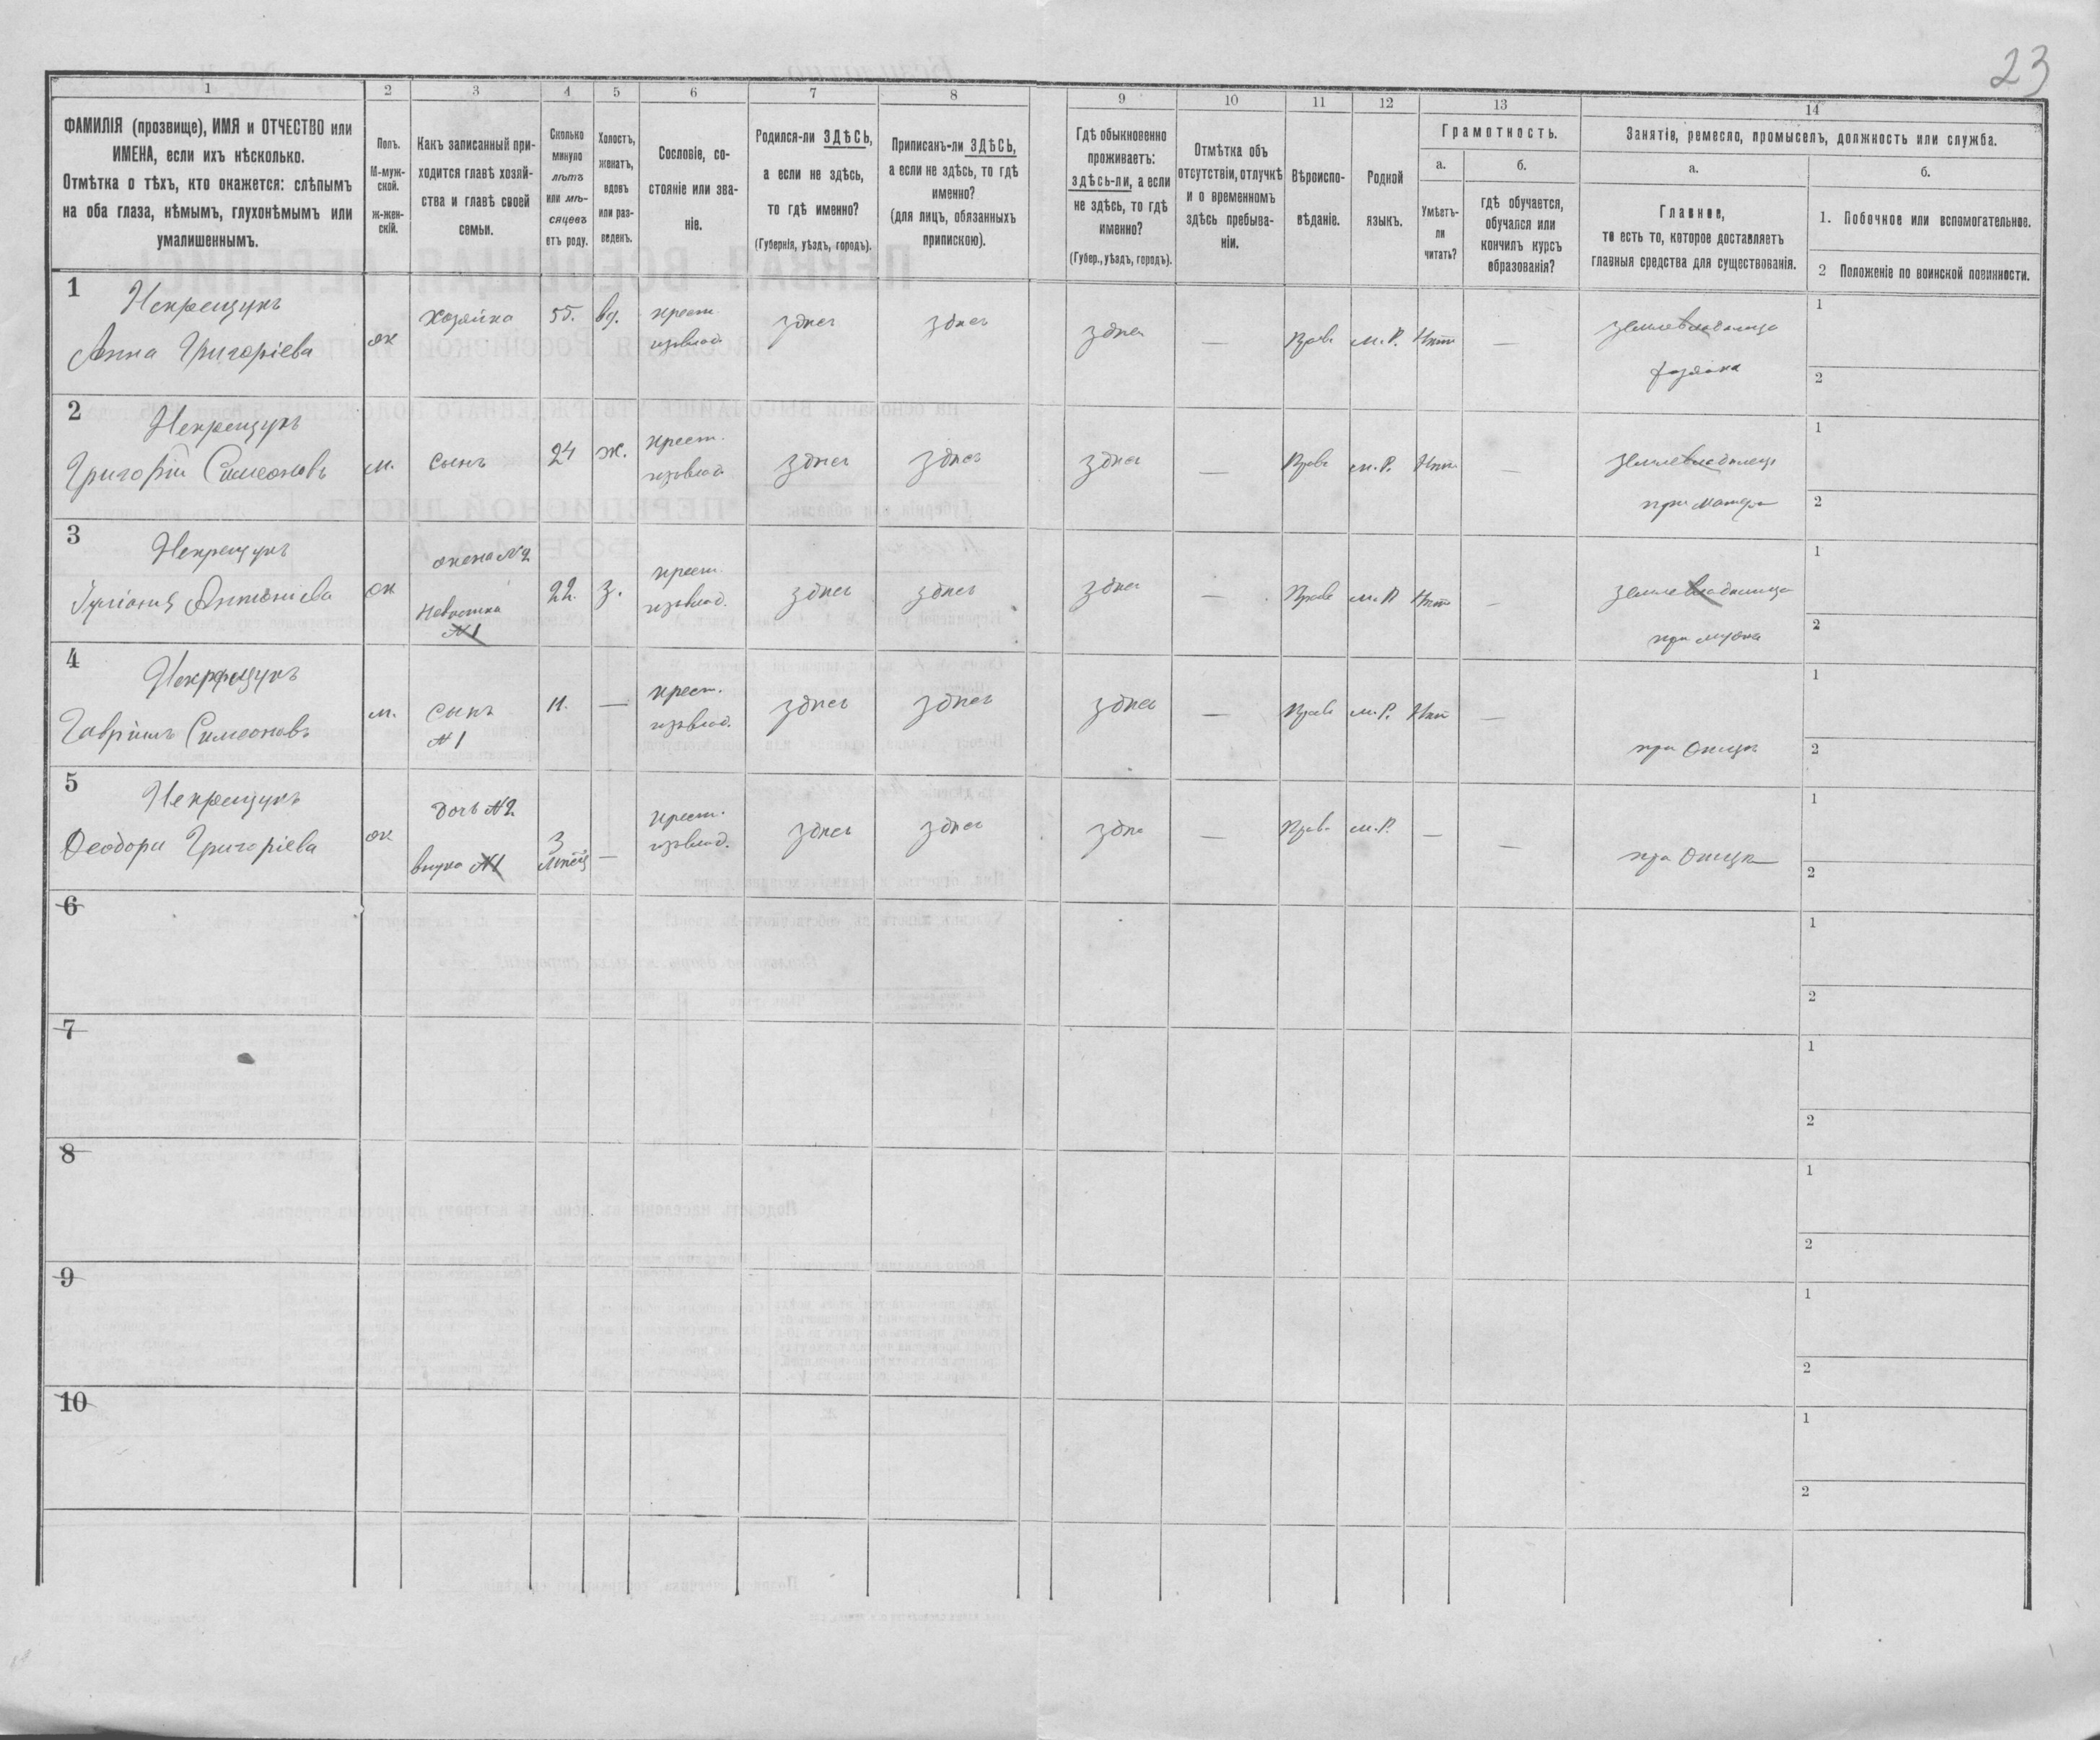 23
1 2 3 4 5 6 7 8 9 10 11 12 13 14
ФАМИЛІЯ (прозвище), ИМЯ и ОТЧЕСТВО или
ИМЕНА, если ихъ нѣсколько.
Отмѣтка о тѣхъ, кто окажется: слѣпымъ
на оба глаза, нѣмымъ, глухонѣмымъ или
умалишеннымъ.
Полъ.
М-муж-
ской.
ж-жен-
скій.
Какъ записанный при-
ходится главѣ хозяй-
ства и главѣ своей
семьи.
Сколько
минуло
лѣтъ
или мѣ-
сяцевъ
отъ роду.
Холостъ,
женатъ,
вдовъ
или раз-
веденъ.
Сословіе, со-
стояніе или зва-
ніе.
Родился-ли ЗДѢСЬ,
а если не здѣсь,
то гдѣ именно?
(Губернія, уѣздъ, городъ).
Приписанъ-ли ЗДѢСЬ,
а если не здѣсь, то гдѣ
именно?
(для лицъ, обязанныхъ
припискою).
Гдѣ обыкновенно
проживаетъ:
здѣсь-ли, а если
не здѣсь, то гдѣ
именно?
(Губер., уѣздъ, городъ).
Отмѣтка объ
отсутствіи, отлучкѣ
и о временномъ
здѣсь пребыва-
ніи.
Вѣроиспо-
вѣданіе.
Родной
языкъ.
Грамотность.
а.
Умѣетъ-
ли
читать?
б.
гдѣ обучается,
обучался или
кончилъ курсъ
образованія?
Занятіе, ремесло, промыселъ, должность или служба.
а.
Главное,
то есть то, которое доставляетъ
главныя средства для существованія.
б.
1. Побочное или вспомогательное.
2 Положеніе по воинской повинности.
1
Некрещукъ
Анна Григоріева
ж
хозяйка
55.
вд.
крест
здесь
здесь
здесь
—
Прав
м.Р.
Нѣт
—
землевладелица
хозяйка
1
2
2
Некрещукъ
Григорій Симеоновъ
м.
сынъ
24
ж.
крест.
здесь
здесь
здесь
—
Прав
м.Р.
Нѣт
—
землевладелец
при матери
1
2
3
Некрещукъ
Антоніева
ж
жена N2
Невестка
N1
22.
з.
крест.
здесь
здесь
здесь
—
Прав
м.Р
Нѣт
—
землевладелица
при мужѣ
1
2
4
Некрещукъ
Гавріилъ Симеоновъ
м.
сынъ
N1
11.
—
крест.
здесь
здесь
здесь
—
Прав
м.Р.
Нѣт
—
1
2
5
Некрещукъ
Феодора Григоріева
ж
дочь N2
внука N1
3
—
крест.
здесь
здесь
здес
—
Прав
м.Р.
—
—
1
2
6
1
2
7
1
2
8
1
2
9
1
2
10
1
2